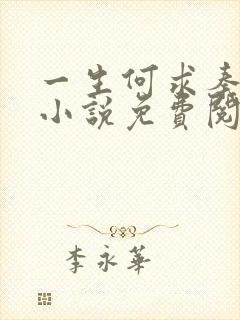 一生何求秦
小说免費閱
李永華